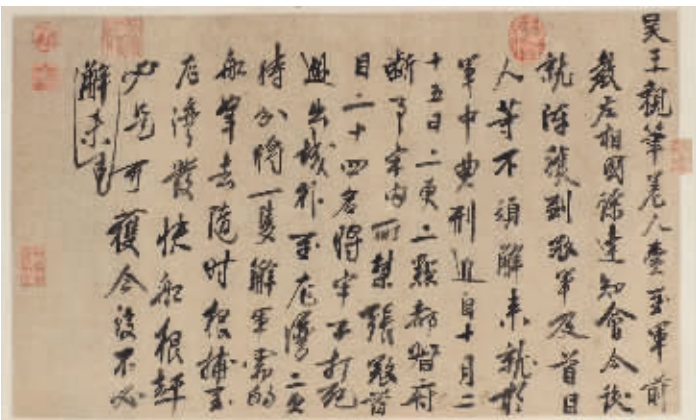 吳王親筆差人賫至軍前
教左相國徐達知會今後
就陣獲到寇軍及首目
人等不須解來就於
軍中典刑近自十月二
十五日二更二點都督府
斷事家內所禁張寇首
目二十四名將牢子打死
越出城外至龙灣二更
時分將一隻解軍需的
船奪去隨時根捕至
龙灣發快船根趕
必是可獲今後不必
解來也